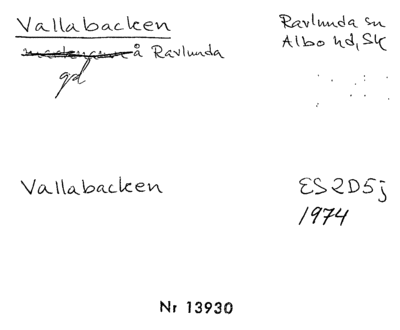 Vallabacken
Ravlunda sn
Albo hd, Sk
å Ravlunda
gd
Vallabacken
ES2D5j
1974
Nr 13930